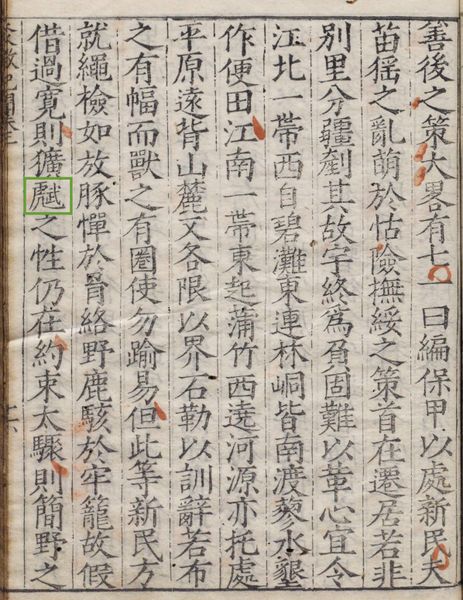 善後之策大畧有七一曰編保甲以處新民夫
苗猺之亂萌於怙險撫綏之策首在遷居若非
別里分疆剗其故宇終為負固難以革心宜令
江北一帶西自碧灘東連林峒皆南渡蓼水墾
作便田江南一帶東起蒲竹西遶河源亦托處
平原遠背山麓又各限以界石勒以訓辭若布
之有幅而獸之有圈使勿踰易但此等新民方
就繩檢如放豚憚於胷絡野鹿駭於牢籠故假
借過寬則獷之性仍在約束太驟則簡野之